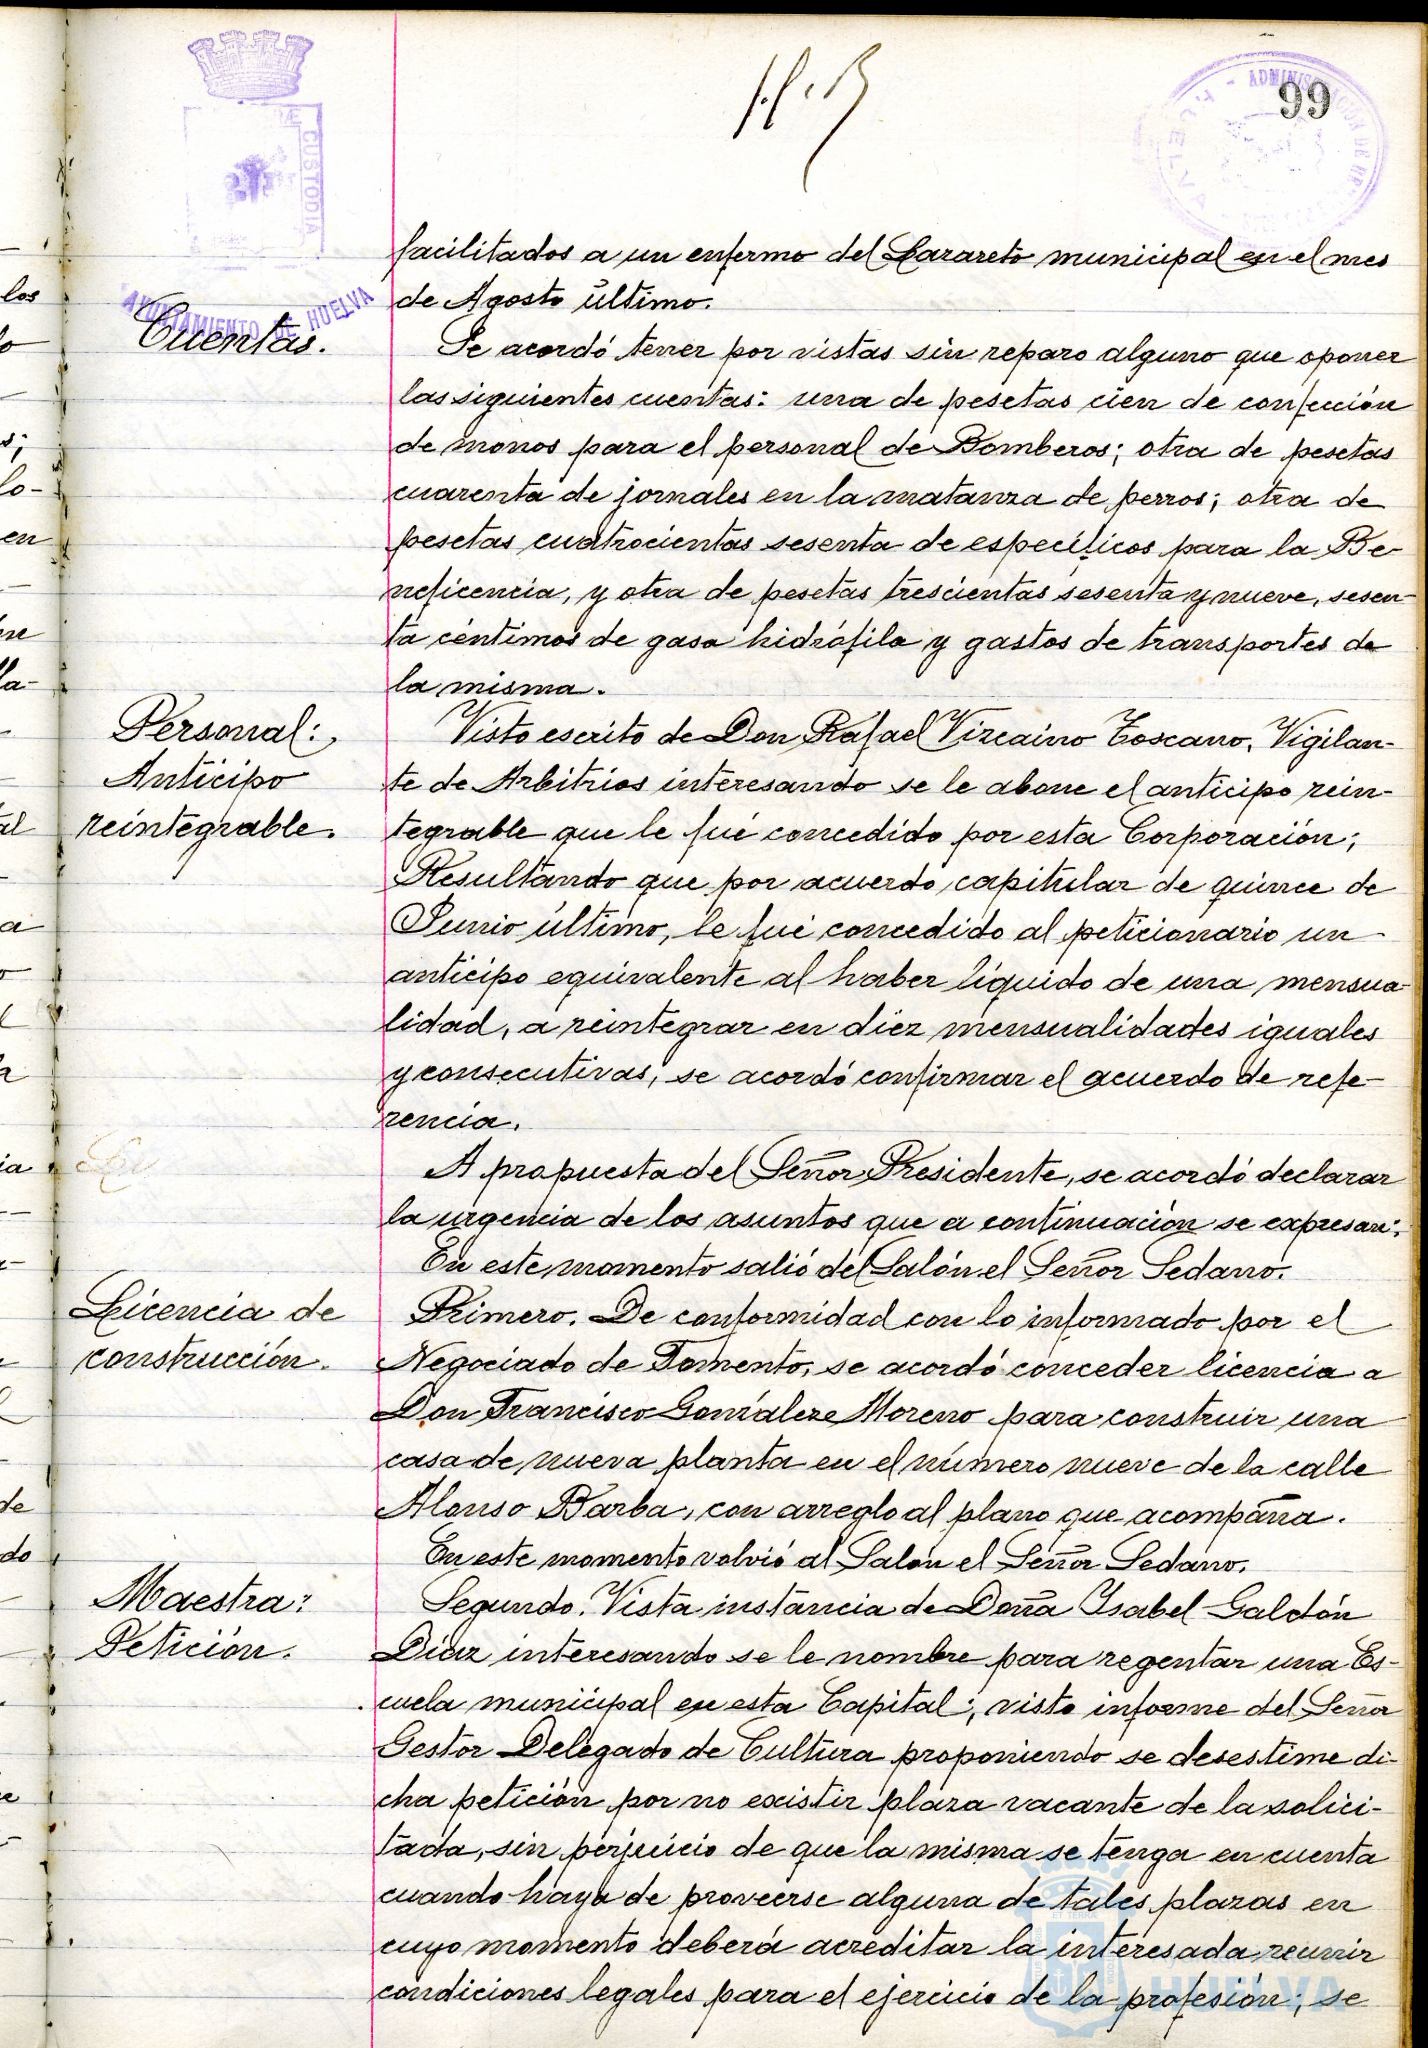 99
AYUNTAMIENTO DE HUELVA
CUSTODIA
facilitados a un enfermo del Lazareto municipal en el mes
de Agosto último.
Cuentas.
Se acordó tener por vistas sin reparo alguno que oponer
las siguientes cuentas: una de pesetas cien de confección
de monos para el personal de Bomberos; otra de pesetas
cuarenta de jornales en la matanza de perros; otra de
pesetas cuatrocientas sesenta de específicos para la Be-
neficencia, y otra de pesetas trescientas sesenta y nueve, sesen-
ta céntimos de gasa hidrófila y gastos de transportes de
la misma.
Personal:
Anticipo
reintegrable.
Visto escrito de Don Rafael Vizcaino Toscano, Vigilan-
te de Arbitrios interesando se le abone el anticipo rein-
tegrable que le fué concedido por esta Corporación;
Resultando que por acuerdo capitular de quince de
Junio último, le fué concedido al peticionario un
anticipo equivalente al haber líquido de una mensua-
lidad, a reintegrar en diez mensualidades iguales
y consecutivas, se acordó confirmar el acuerdo de refe-
rencia.
A propuesta del Señor Presidente, se acordó declarar
la urgencia de los asuntos que a continuación se expresan:
En este momento salió del Salón el Señor Sedano.
Licencia de
construcción.
Primero. De conformidad con lo informado por el
Negociado de Fomento, se acordó conceder licencia a
Don Francisco Gonzalez Moreno para construir una
casa de nueva planta en el número nueve de la calle
Alonso Barba, con arreglo al plano que acompaña.
En este momento volvió al Salón el Señor Sedano.
Maestra:
Petición.
Segundo. Vista instancia de Doña Isabel Galdón
Diaz interesando se le nombre para regentar una Es-
cuela municipal en esta Capital; visto informe del Señor
Gestor Delegado de Cultura proponiendo se desestime di-
cha petición por no existir plaza vacante de la solici-
tada, sin perjuicio de que la misma se tenga en cuenta
cuando haya de proveerse alguna de tales plazas en
cuyo momento deberá acreditar la interesada reunir
condiciones legales para el ejercicio de la profesión; se
HUELVA